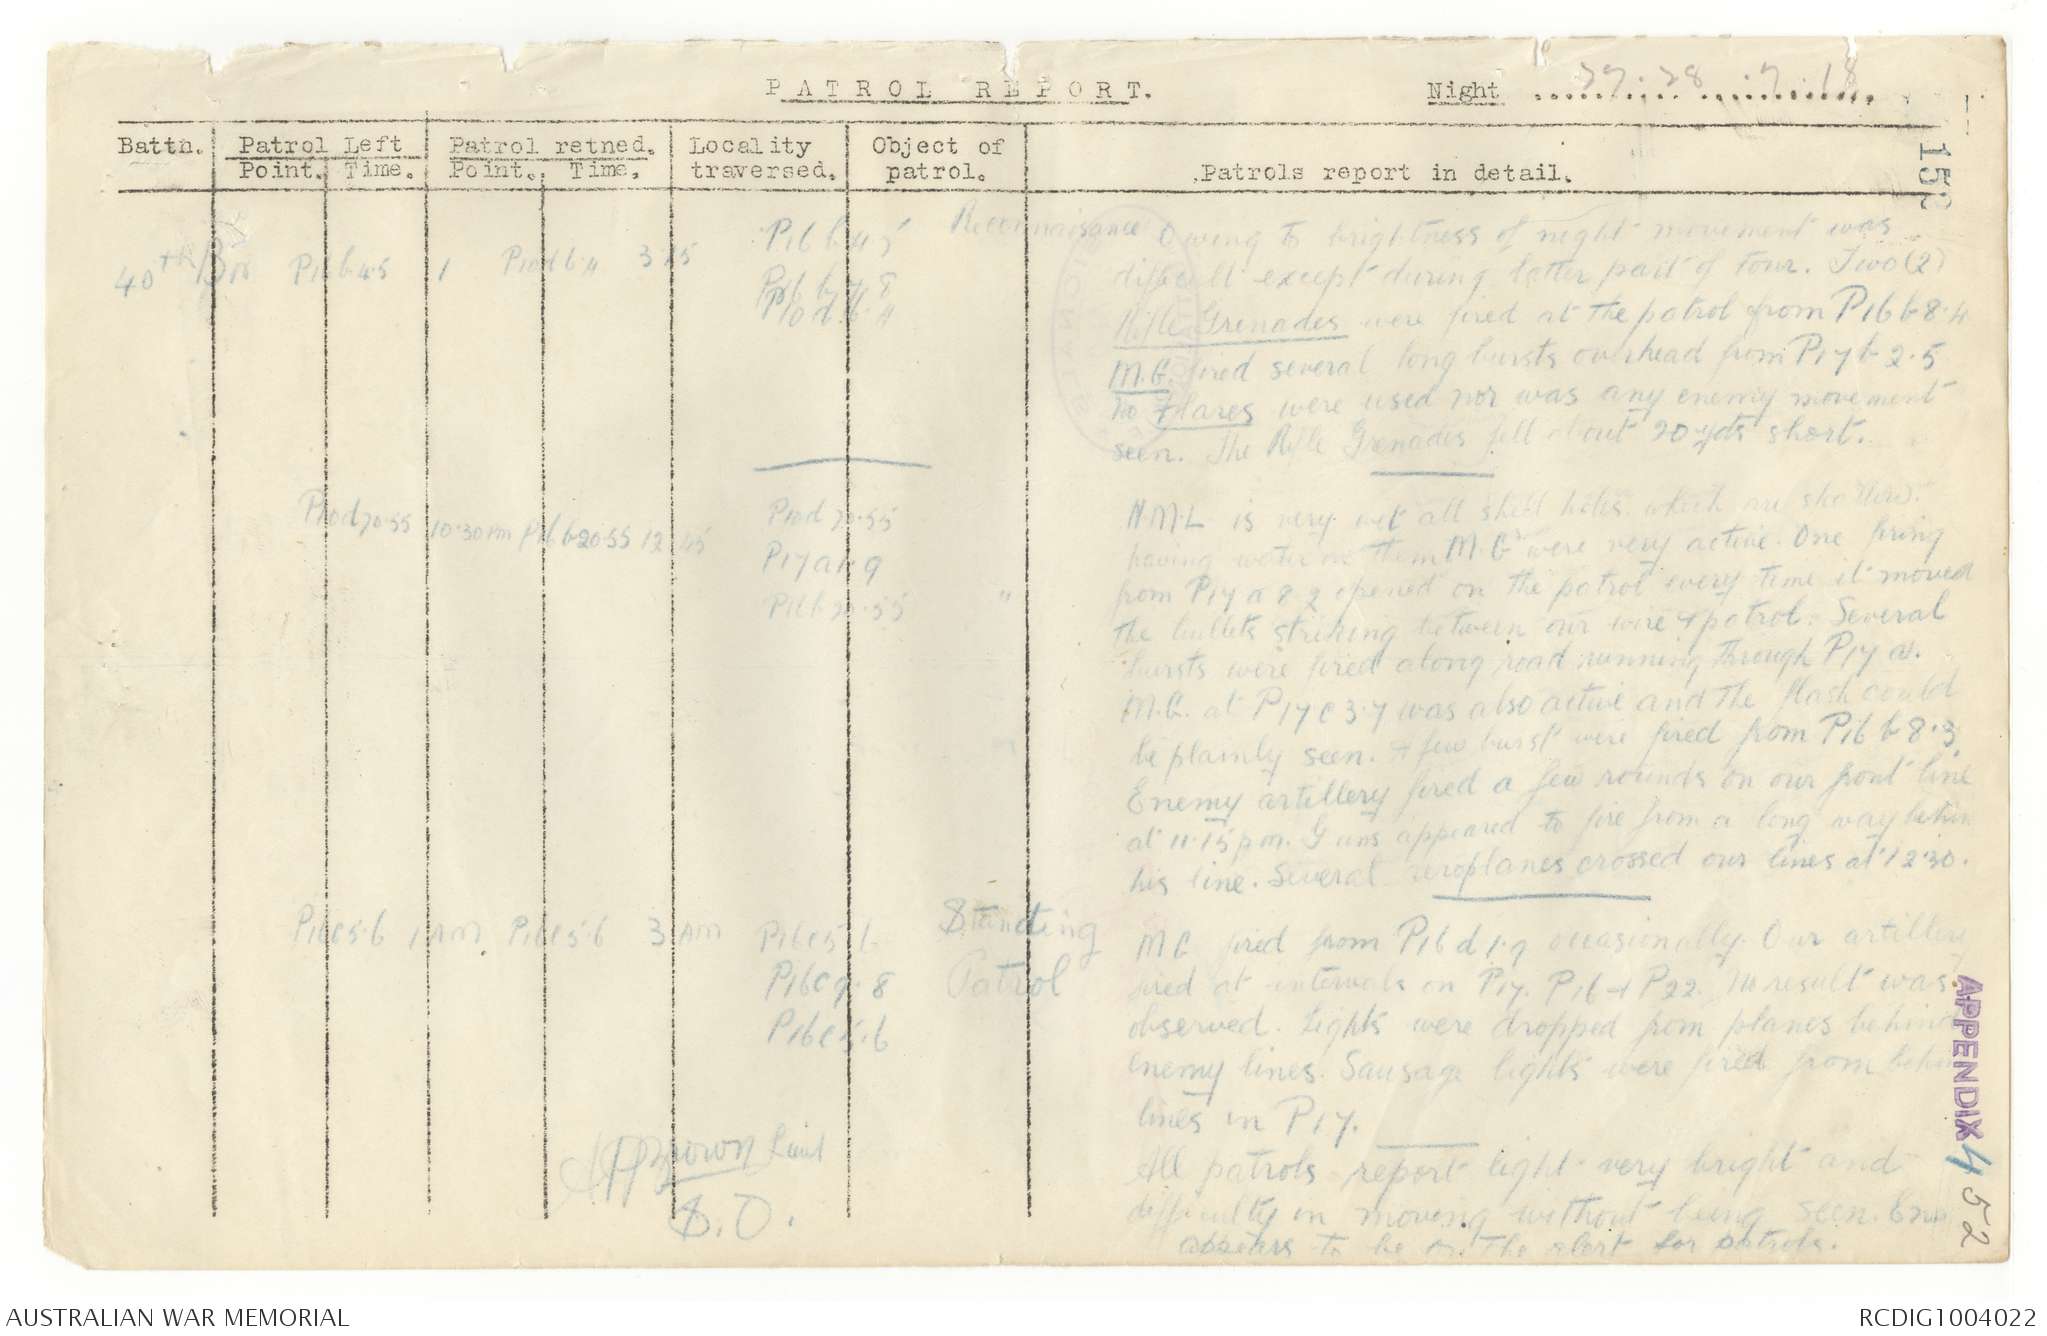 PATROL REPORT.
Night 27.28.7.18
152
Battn.
Patrol Left
Point. Time.
Patrol retned.
Point. Time.
Locality
traversed.
Object of
patrol.
Patrols report in detail.
40th Bn P16 b.4.5 1 P10d 6.4 3.15
P16 b 4.5
P16 b 7.8
P10d.6.4
Reconnaisance
Owing to brightness of night movement was
difficult except during latter part of tour. Two (2)
Rifle Grenades were fired at the patrol from P16 b 8.4
M.G. fired several long bursts overhead from P17 b 2.5
No Flares were used nor was any enemy movement
seen. The Rifle Grenades fell about 20 yds short.
P10d 70.55 10.30 PM P16 b 20.55 12.45
P10d 70.55
P17 a 1.9
P16 b 20.55
"
N.M.L. is very wet all shell holes which are shallow
having water in them M.Gs were very active. One firing
from P17 a 8.2 opened on the patrol every time it moved
the bullets striking between our wire & patrol. Several
bursts were fired along road running through P17 a.
M.G. at P17 c 3.7 was also active and the flash could
be plainly seen. A few burst were fired from P16 b 8.3.
Enemy artillery fired a few rounds on our front line
at 11.15 pm. Guns appeared to fire from a long way behin
his line. Several aeroplanes crossed our lines at 12.30.
P16c5.6 1 AM P16c5.6 3 AM
P16c5.6
P16c9.8
P16c5.6
Standing
Patrol
MG fired from P16 d 1.9 occasionally. Our artillery
fired at intervals on P17. P16 + P22. No result was
observed. Lights were dropped from planes behind
enemy lines. Sausage lights were fired from behin
lines in P17.
All patrols report light very bright and
difficulty in moving without being seen. Enn
appears to be on the alert for patrols.
Brown Lieut
I.O.
APPENDIX 4
52
AUSTRALIAN WAR MEMORIAL
RCDIG1004022